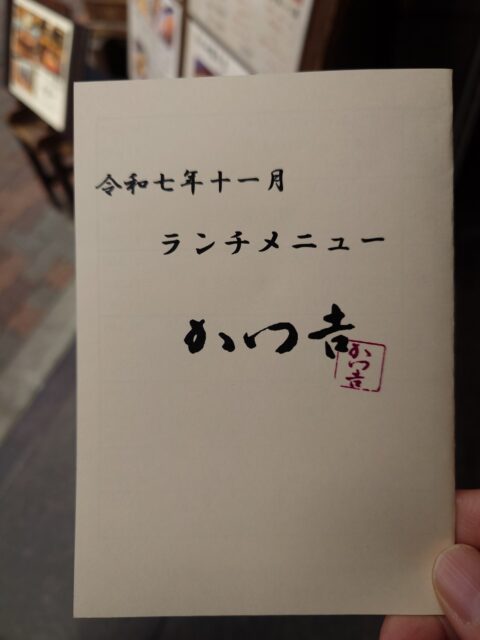 令和七年十一月
ランチメニュー
かつ吉
かつ吉